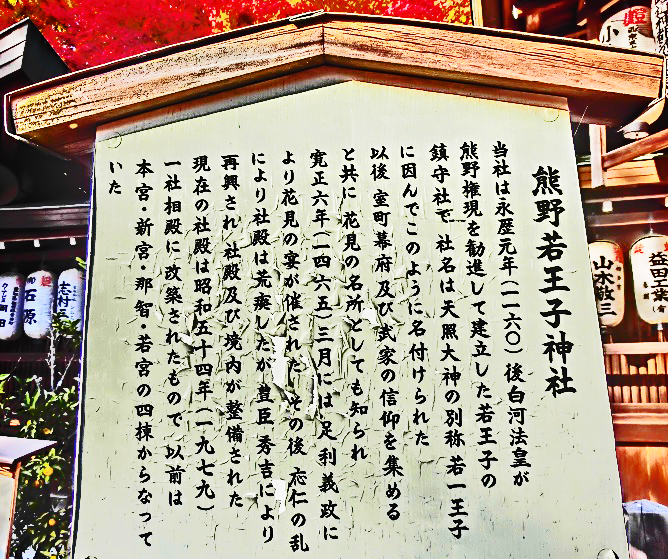 熊野若王子神社
当社は永歴元年(一一六〇)後白河法皇が
熊野権現を勧進して建立した若王子の
鎮守社で 社名は天照大神の別称 若一王子
に因んでこのように名付けられた
以後 室町幕府 及び武家の信仰を集める
と共に 花見の名所としても知られ
寛正六年(一四六五)三月には 足利義政に
より花見の宴が催された その後 応仁の乱
により社殿は荒廃したが 豊臣 秀吉により
再興され 社殿及び境内が整備された
現在の社殿は昭和五十四年(一九七九)
一社相殿に改築されたもので 以前は
本宮・新宮・那智・若宮の四棟からなって
いた
益田工業
山本敏三
志村三
石原